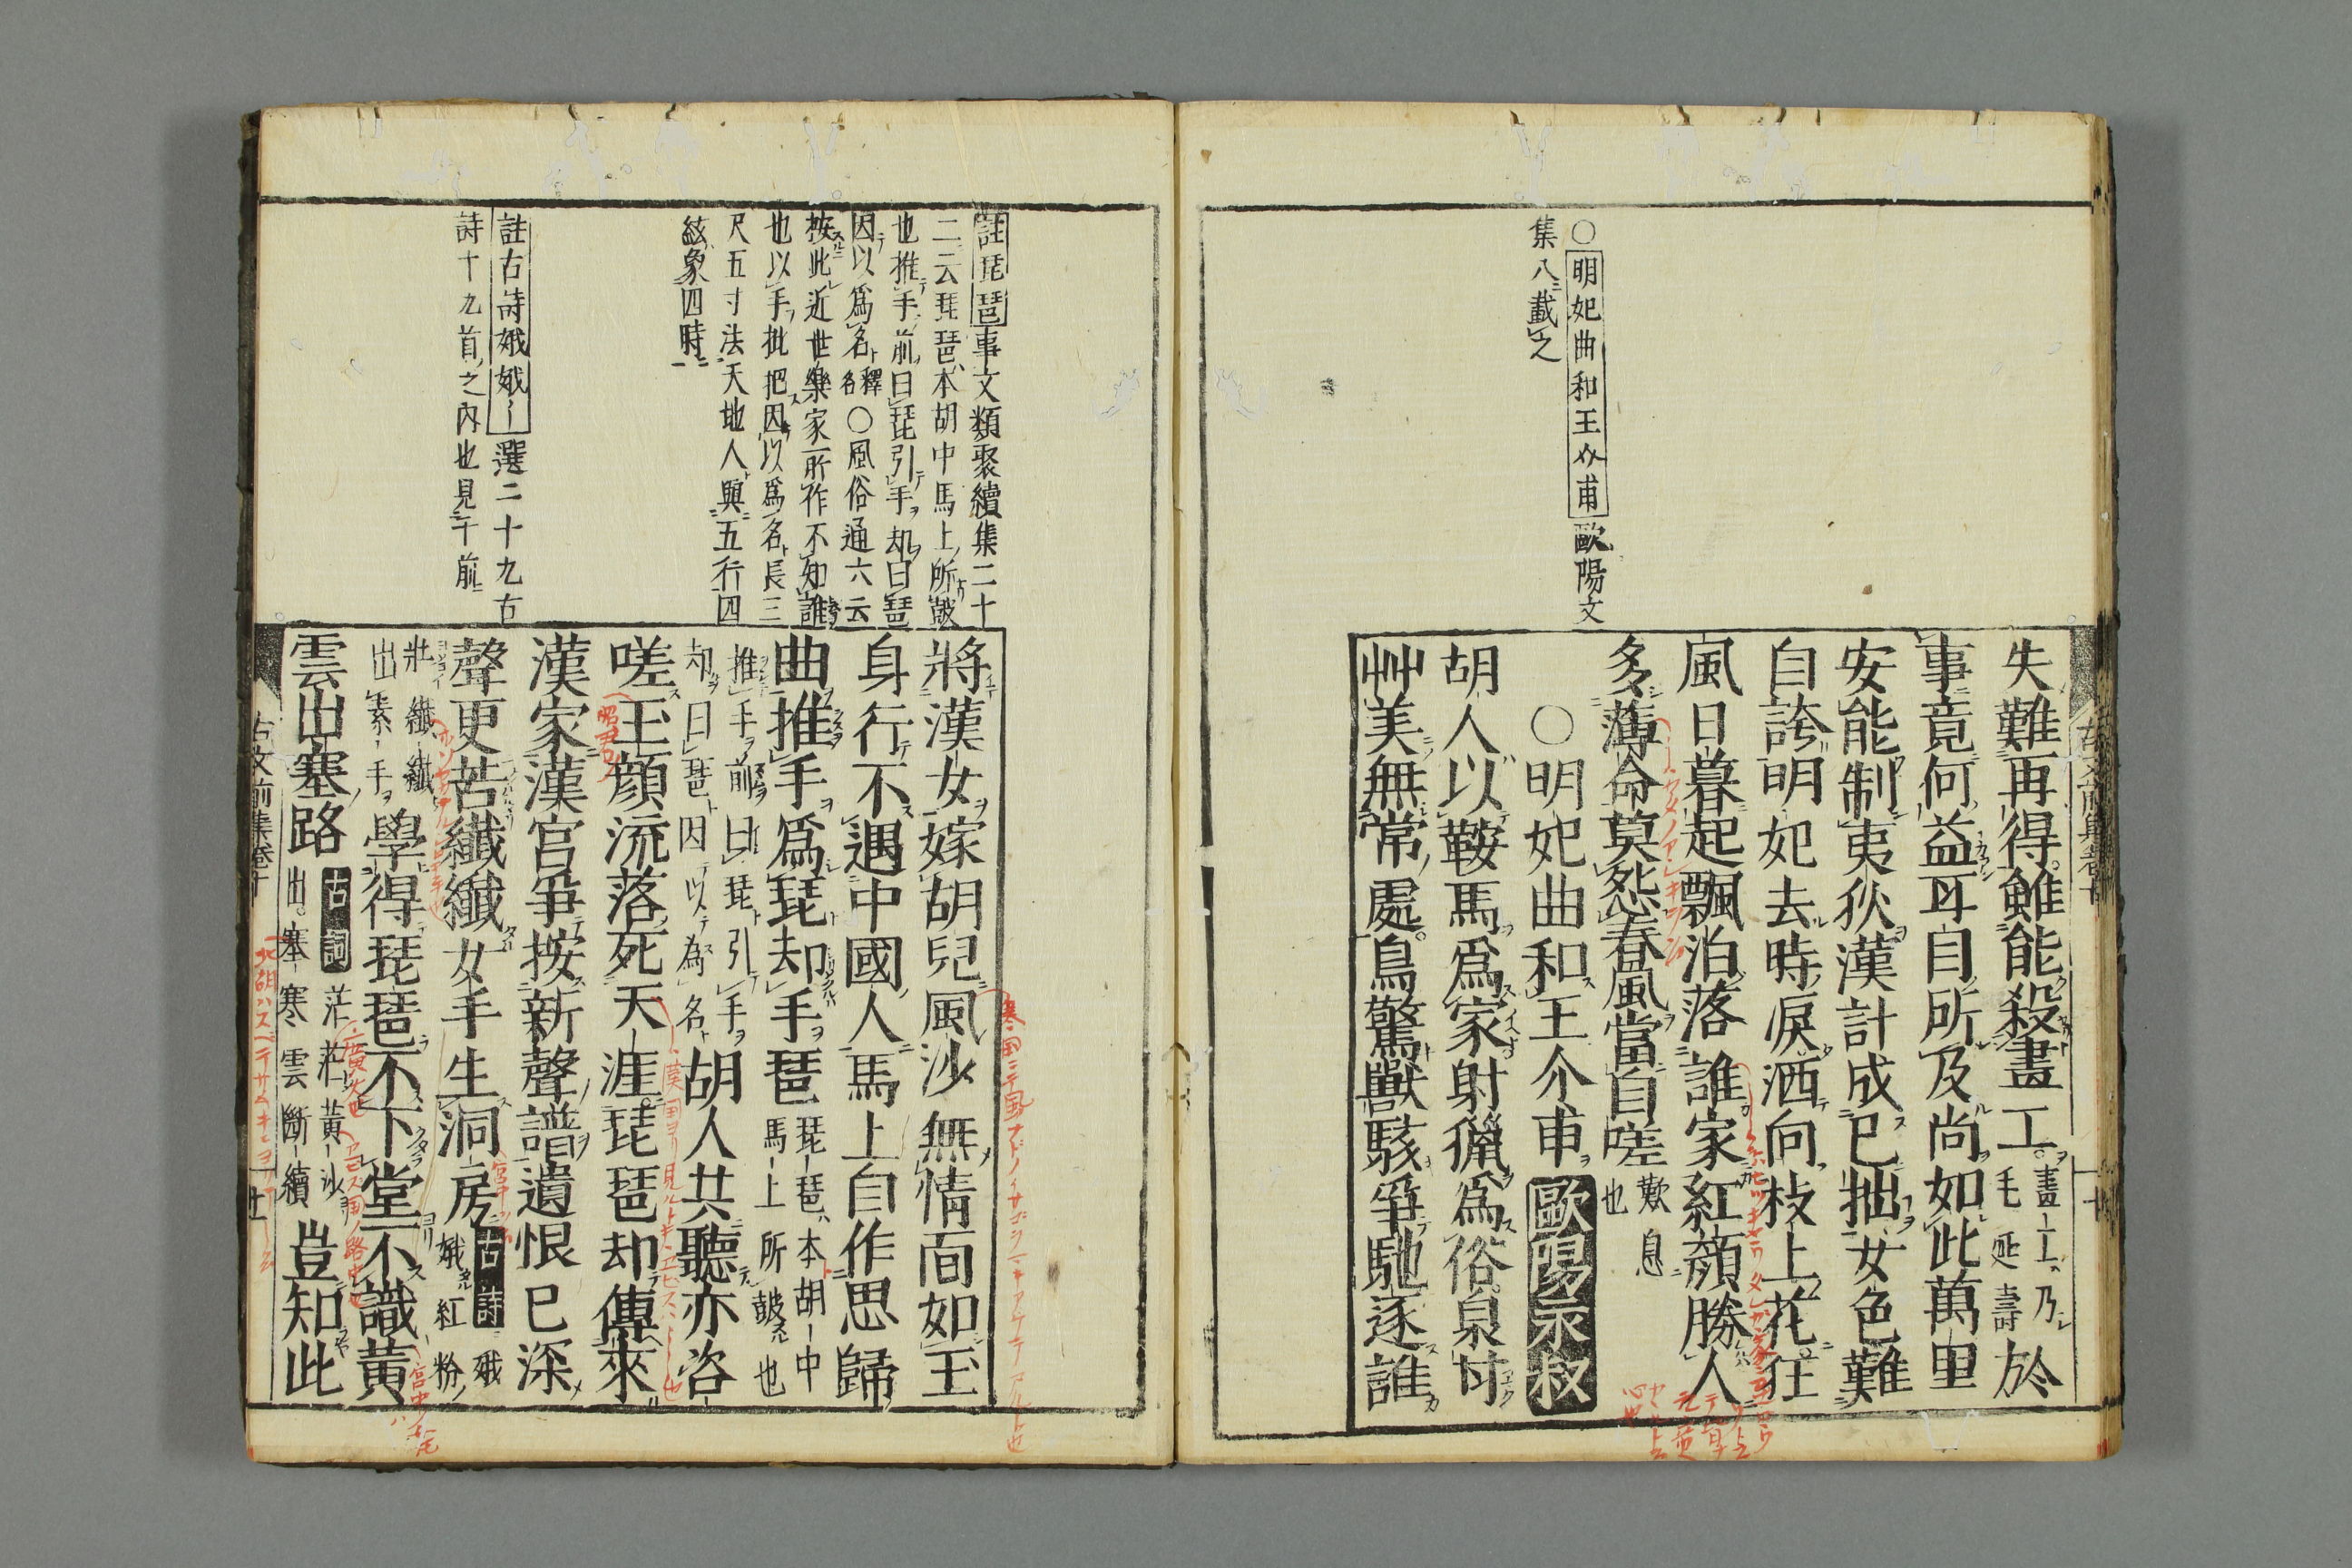 ○明妃曲和王介甫歐陽文
集八載之
失難再得。雖能殺畫工。畫工乃毛延壽於
事竟何益耳目所及尚如此萬里
安能制夷狄漢計成已拙女色難
自誇明妃去時淚洒向枝上花狂
風日暮起飄泊落誰家紅顏勝人
多薄命莫怨春風當自嗟歎息也
○明妃曲和王介甫 歐陽永叔
胡人以鞍馬爲家射獵爲俗泉甘
艸美無常處。鳥驚獸駭爭馳逐誰
註琵琶事文類聚續集二十
二云琵琶本胡中馬上所皷
也推手前曰琵引手却曰琶
因以爲名釋名○風俗通六云
按此近世樂家所作不知誰
也以手批把因以爲名長三
尺五寸法天地人與五行四
絃象四時
註古詩娥娥選二十九古
詩十九首之內也見于前
將漢女嫁胡兒風沙無情面如玉
身行不遇中國人馬上自作思歸
曲推手爲琵却手琶琵琶本胡中馬上所皷也
推手前曰琵引手却曰琶因以爲名胡人共聽亦咨
嗟玉顏流落死天涯琵琶却傳來
漢家漢宮爭按新聲譜遺恨已深
聲更苦纖纖女手生洞房古詩娥娥紅粉
粧纖纖出素手學得琵琶不下堂不識黃
雲出塞路古詞茫茫黃沙出塞寒雲斷續豈知此
古文前集卷十